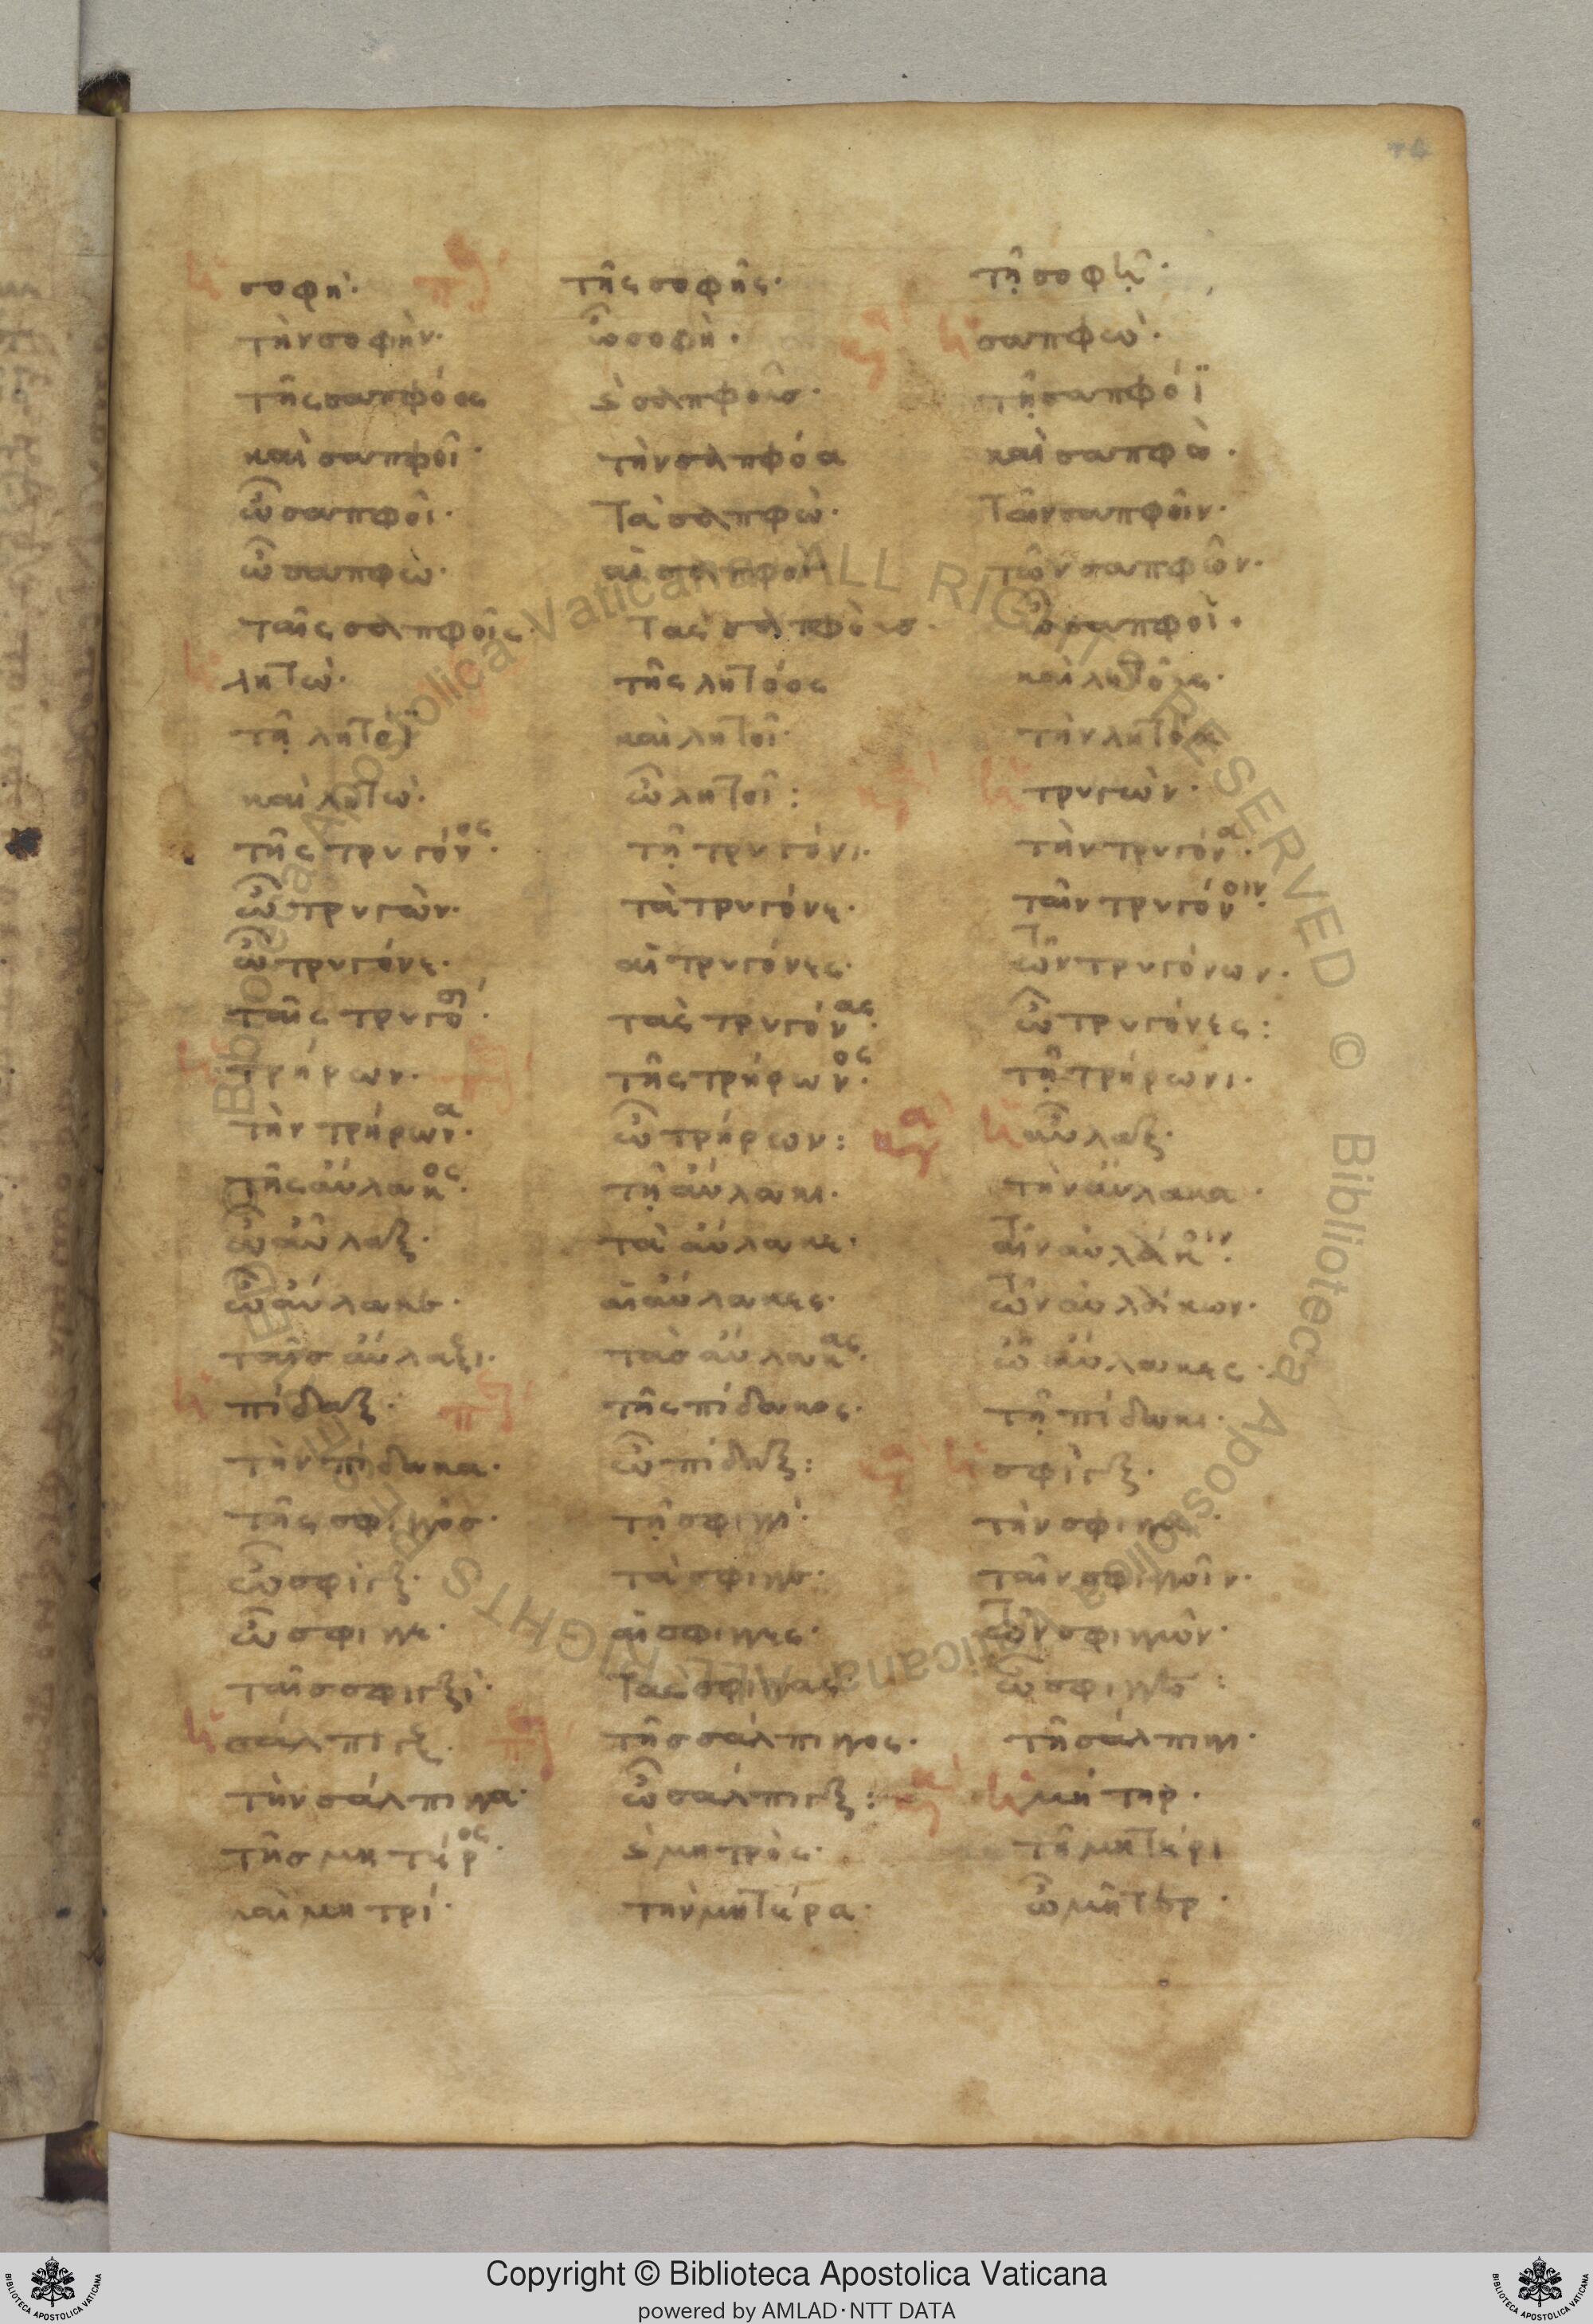 ἡ σοφή· τῆς σοφῆς· τῇ σοφῇ·
τὴν σοφὴν· ὦ σοφὴ· ἡ σαπφώ·
τῆς σαπφόος ϗ σαπφοῦς· τῇ σαπφόϊ
καὶ σαπφοῖ· τὴν σαπφόα καὶ σαπφώ·
ὦ σαπφοῖ· τὰ σαπφώ· ταῖν σαπφοῖν·
ὦ σαπφώ· αἱ σαπφοὶ τῶν σαπφῶν·
ταῖς σαπφοῖς· τὰς σαπφοὺς· ὦ σαπφοί·
ἡ λητώ· τῆς λητόος καὶ λητοῦς·
τῇ λητόϊ καὶ λητοῖ· τὴν λητόα
καὶ λητώ· ὦ λητοῖ: ἡ τρυγών·
τῆς τρυγόνος· τῇ τρυγόνι· τὴν τρυγόνα·
ὦ τρυγών· τὰ τρυγόνε· ταῖν τρυγόνοιν·
ὦ τρυγόνε· αἱ τρυγόνες· τῶν τρυγόνων·
ταῖς τρυγόσι· τὰς τρυγόνας· ὦ τρυγόνες:
ἡ τρήρων· τῆς τρήρωνος· τῇ τρήρωνι·
τὴν τρήρωνα· ὦ τρήρων: ἡ αὖλαξ·
τῆς αὔλακος· τῇ αὔλακι· τὴν αὔλακα·
ὦ αὖλαξ· τὰ αὔλακε· ταῖν αὐλάκοιν·
ὦ αὔλακε· αἱ αὔλακες· τῶν αὐλάκων·
ταῖς αὔλαξι· τὰς αὔλακας· ὦ αὔλακες·
ἡ πίδαξ· τῆς πίδακος· τῇ πίδακι·
τὴν πίδακα· ὦ πίδαξ: ἡ σφίγξ·
τῆς σφιγγός· τῇ σφιγγί· τὴν σφίγγα·
ὦ σφίγξ· τὰ σφίγγε· ταῖν σφιγγοῖν·
ὦ σφίγγε· αἱ σφίγγες· τῶν σφιγγῶν·
ταῖς σφιγξί· τὰς σφίγγας· ὦ σφίγγες:
ἡ σάλπιγξ· τῆς σάλπιγγος· τῇ σάλπιγγι·
τὴν σάλπιγγα· ὦ σάλπιγξ: ἡ μήτηρ·
τῆς μητέρος· ϗ μητρὸς· τῇ μητέρι
καὶ μητρί· τὴν μητέρα· ὦ μῆτερ·
Copyright © Biblioteca Apostolica Vaticana
powered by AMLAD·NTT DATA